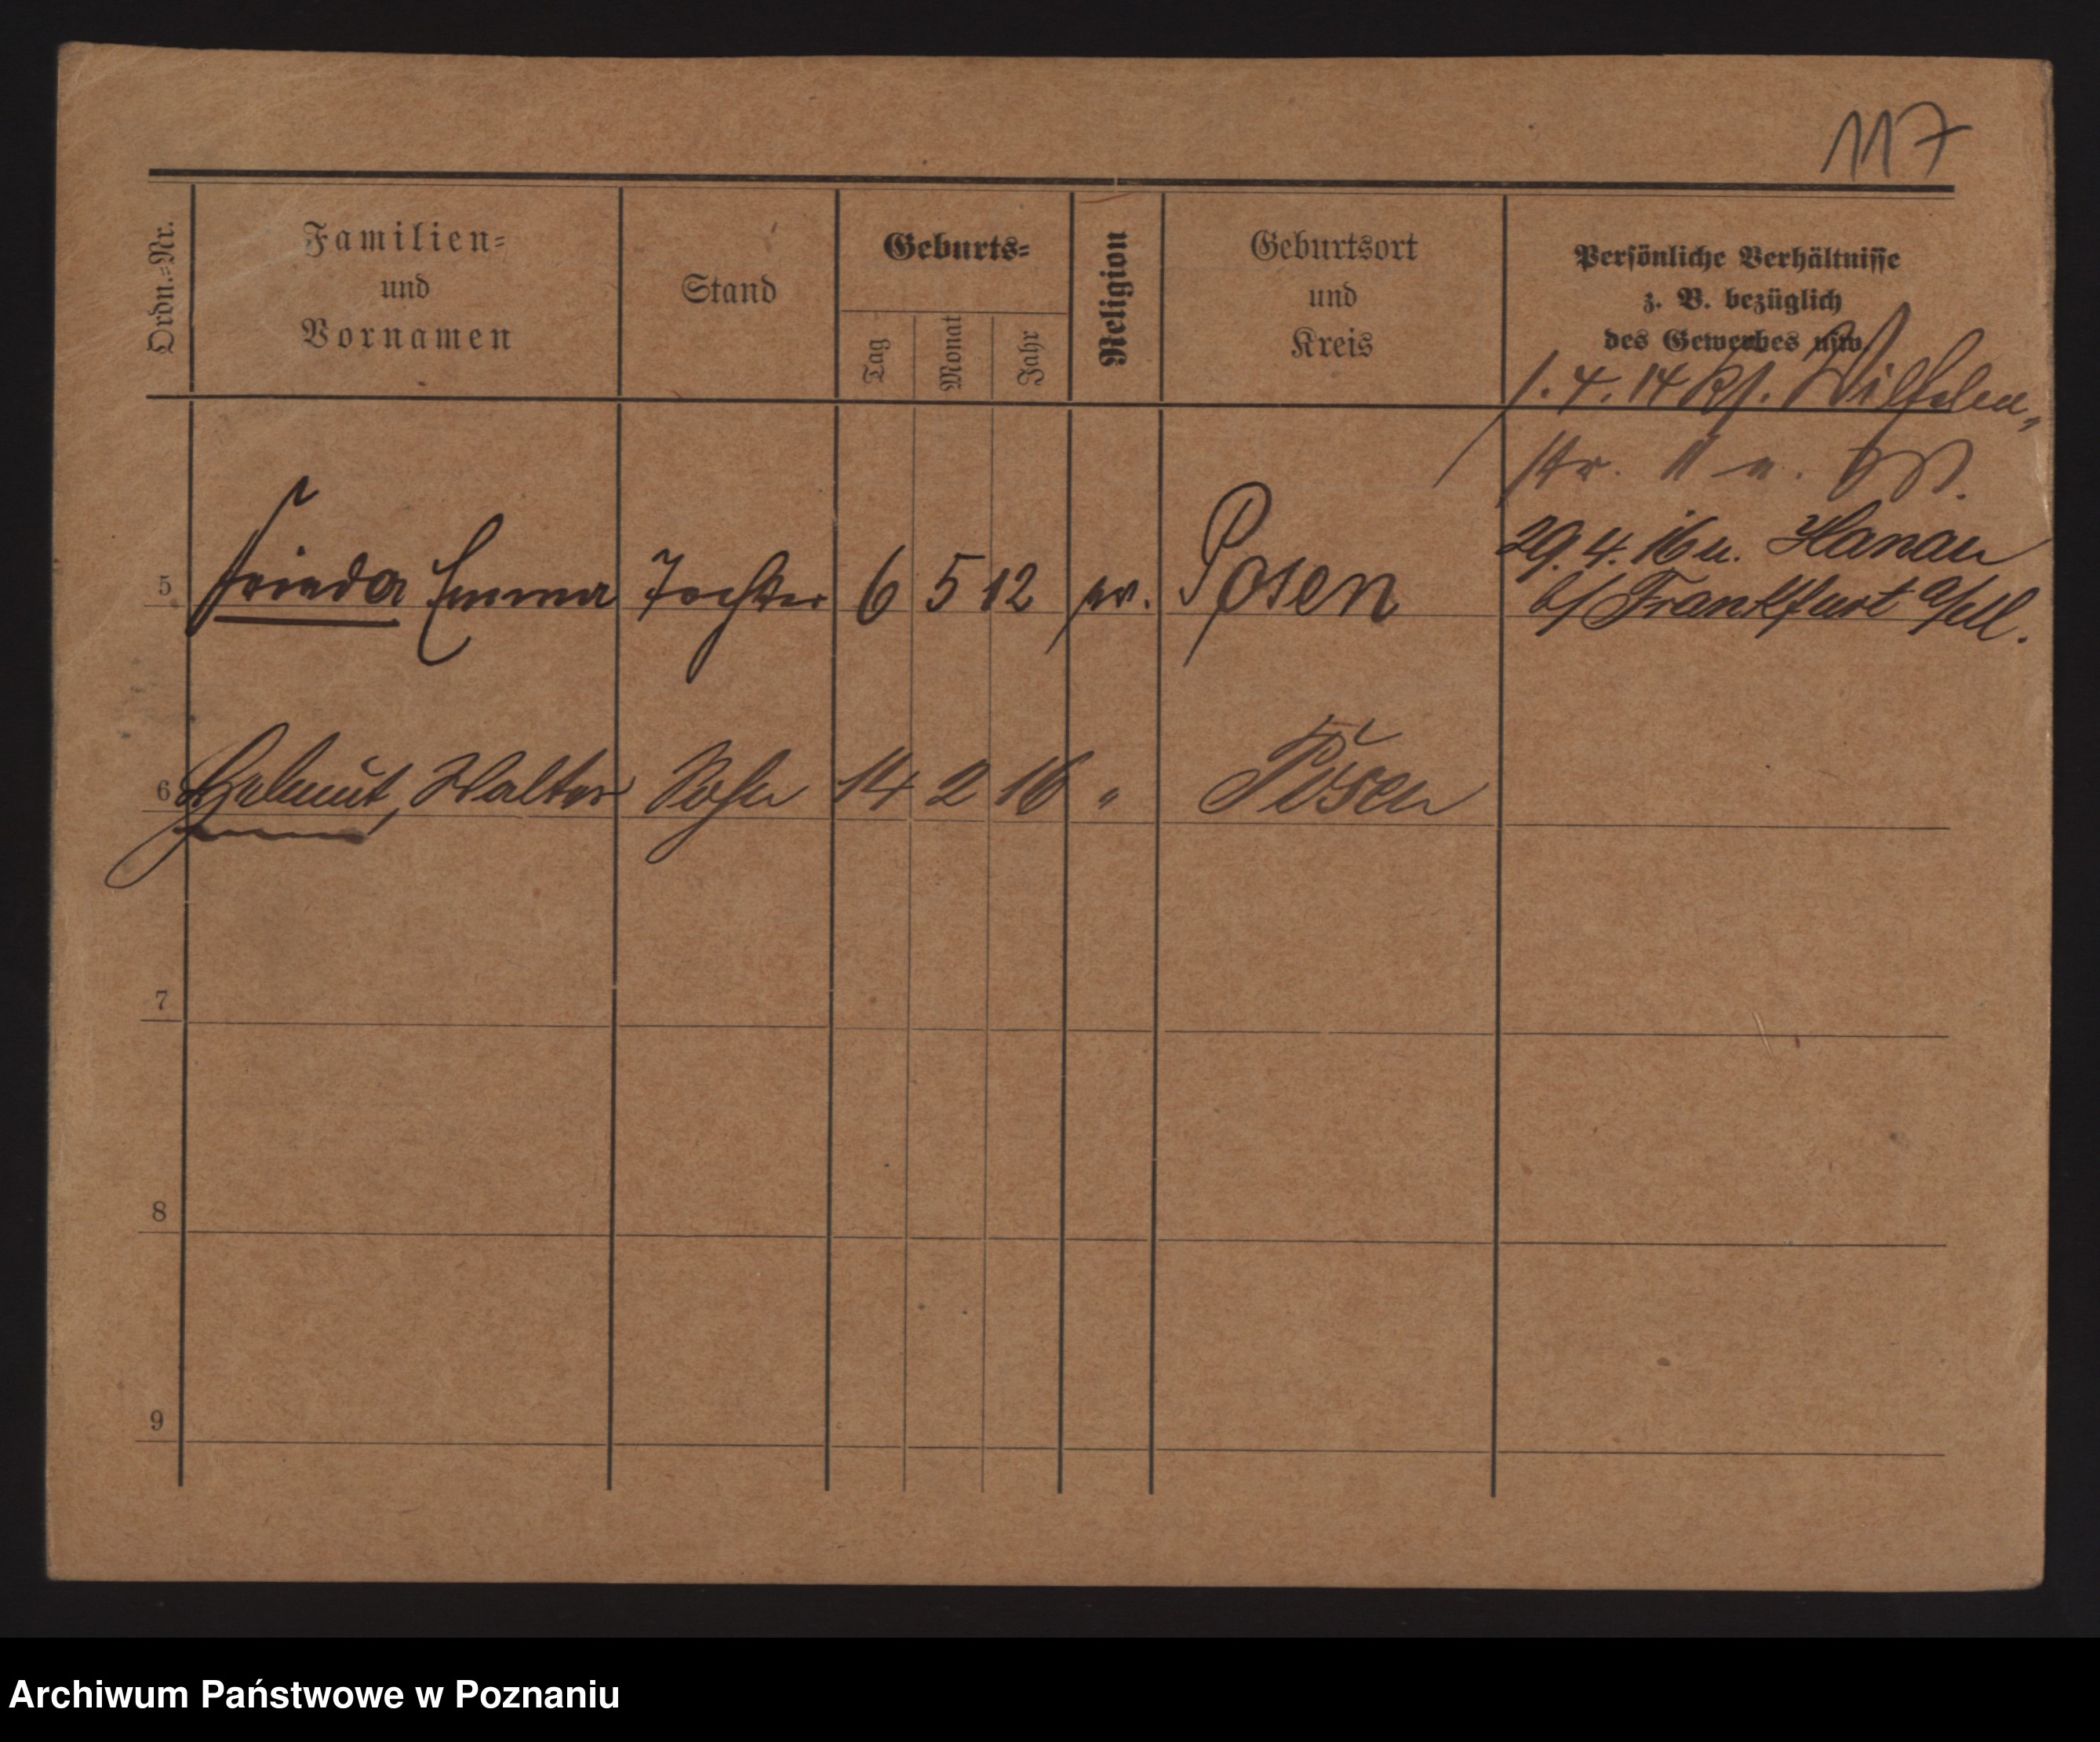 117
Ordn.=Nr.
Familien=
und
Vornamen
Stand
Geburts=
Tag
Monat
Jahr
Religion
Geburtsort
und
Kreis
Persönliche Verhältnisse
z. B. bezüglich
des Gewerbes usw.
1. 4. 14 Wilhelm-
str. 11 n.
5 Frieda Emma Tochter 6 5 12 ev. Posen
29. 4. 16 n. Hanau
b/ Frankfurt a/M.
6 Helmut, Walter Sohn 14 2 16 " Posen
7
8
9
Archiwum Państwowe w Poznaniu